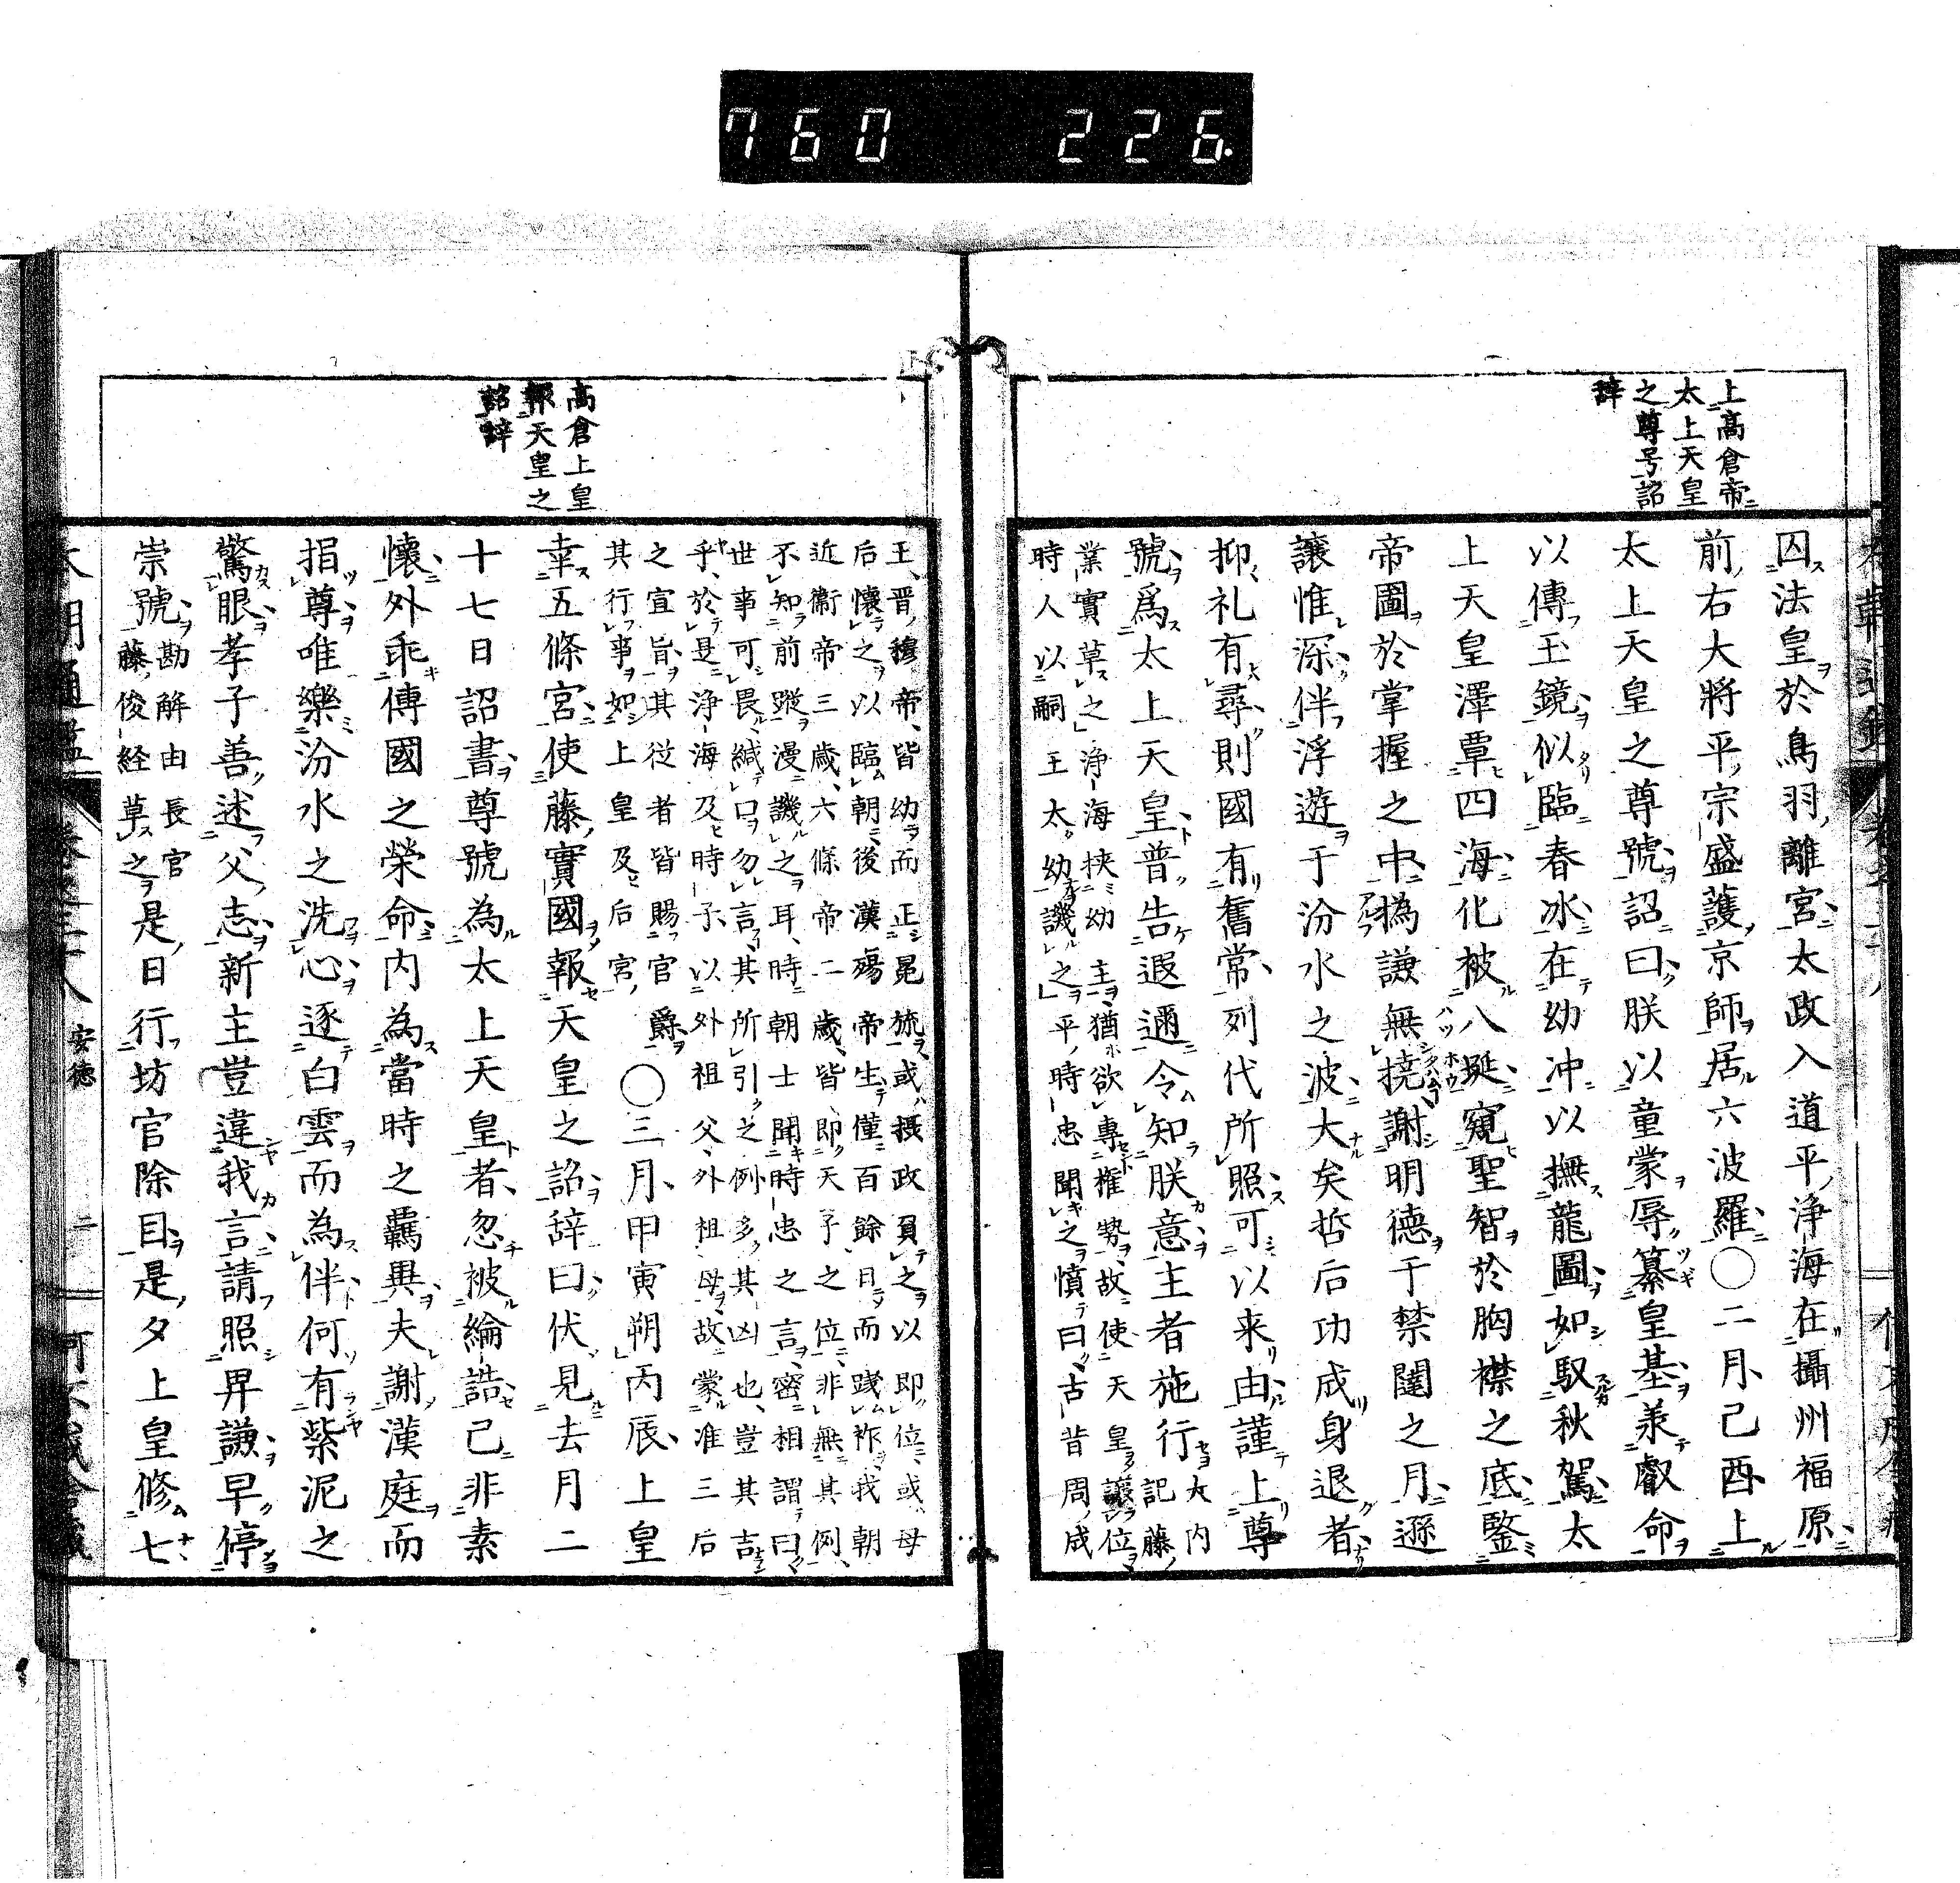 760 226
上高倉帝
太上天皇
之尊号詔
辞
囚法皇於鳥羽離宮太政入道平浄海在攝州福原
前右大將平宗盛護京師居六波羅〇二月己酉上
太上天皇之尊號詔曰朕以童蒙辱纂皇基兼叡命
以傳玉鏡似臨春冰在幼冲以撫龍圖如馭秋駕太
上天皇澤覃四海化被八埏窺聖智於胸襟之底鑒
帝圖於掌握之中撝謙無撓謝明德于禁闥之月遜
讓惟深伴浮遊于汾水之波大矣哲后功成身退者
抑礼有尋則國有舊常列代所照可以来由謹上尊
號爲太上天皇普告遐邇令知朕意主者施行大内記藤
業實草之浄海挟幼主猶欲專權勢故使天皇讓位
時人以嗣王太幼譏之平時忠聞之憤曰古昔周成
高倉上皇
報天皇之
詔辞
王晋穆帝皆幼而正冕旒或攝政負之以即位或母
后懐之以臨朝後漢殤帝生僅百餘日而踐祚我朝
近衞帝三歳六條帝二歳皆即天子之位非無其例
不知前蹤漫譏之耳時朝士聞時忠之言密相謂曰
世事可畏緘口勿言其所引之例多其凶也豈其吉
乎於是浄海及時子以外祖父外祖母故蒙准三后
之宜旨其従者皆賜官爵〇三月甲寅朔丙辰上皇
其行事如上皇及后宮
幸五條宮使藤實國報天皇之詔辞曰伏見去月二
十七日詔書尊號為太上天皇者忽被綸誥己非素
懐外乖傳國之榮命内為當時之覊輿夫謝漢庭而
損尊唯樂汾水之洗心逐白雲而為伴何有紫泥之
驚眼孝子善述父志新主豈違我言請照卑謙早停
崇號勘解由長官藤俊経草之是日行坊官除目是夕上皇修七
安徳
二